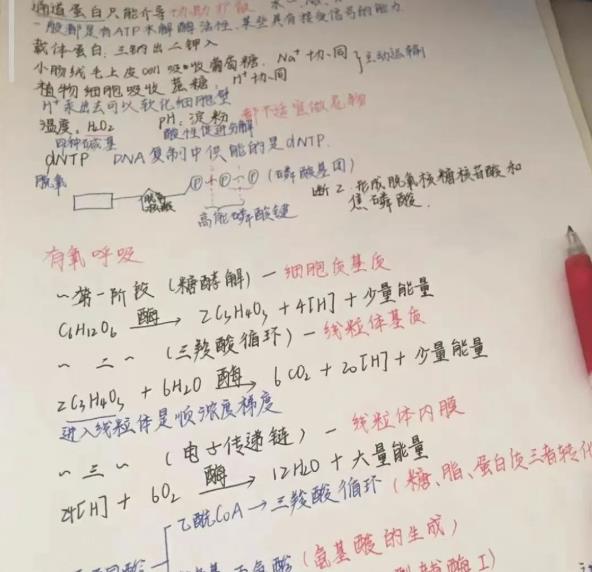 通道蛋白只能介导协助扩散
一般都是有ATP水解酶活性,某些具有接受信号的能力
载体蛋白.三钠出二钾入
小肠绒毛上皮cell吸收葡萄糖.Na⁺协同
植物细胞吸收蔗糖,H⁺协同 }主动运输
H⁺泵出去可以软化细胞壁
温度,H₂O₂ pH:淀粉 都不适宜做底物
酸性促进分解
四种碱基
dNTP DNA复制中供能的是dNTP.
脱氧
P+P~P (磷酸基团)
断2.形成脱氧核糖核苷酸和
焦磷酸.
高能磷酸键
有氧呼吸
~第一阶段(糖酵解)—细胞质基质
C₆H₁₂O₆ 酶→ 2C₃H₄O₃+4[H]+少量能量
~二~(三羧酸循环)—线粒体基质
2C₃H₄O₃+6H₂O 酶→ 6CO₂+20[H]+少量能量
进入线粒体是顺浓度梯度
~三~(电子传递链)—线粒体内膜
24[H]+6O₂ 酶→ 12H₂O+大量能量
乙酰CoA→三羧酸循环(糖、脂、蛋白质三者转化
(氨基酸的生成)